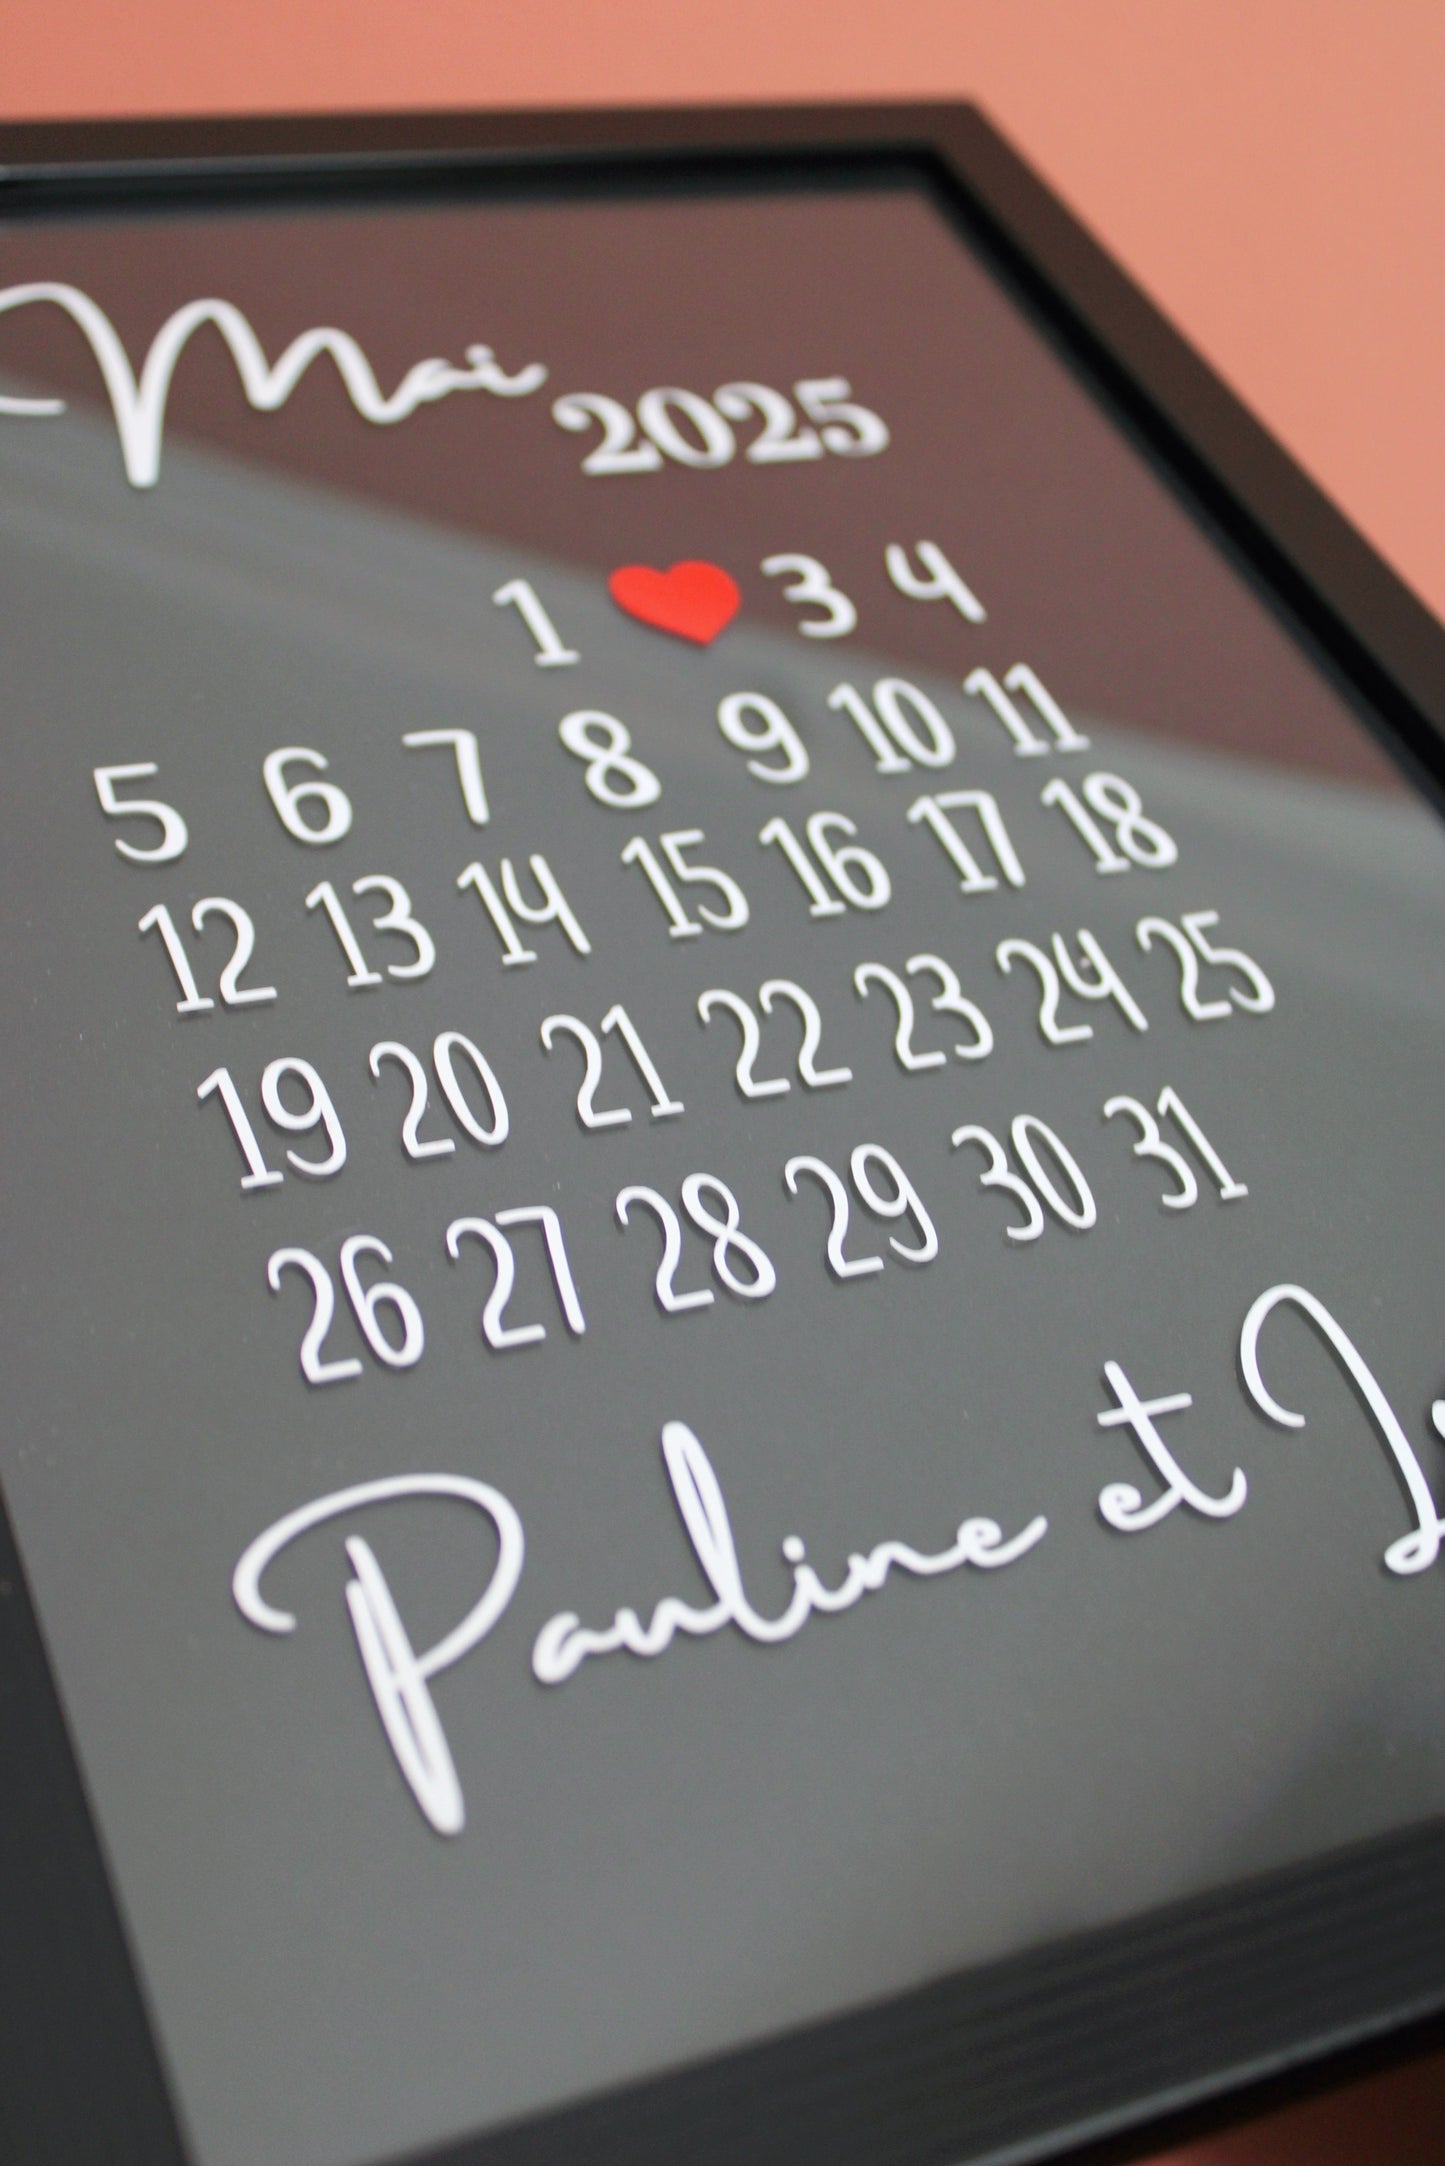 Mai 2025
1 3 4
5 6 7 8 9 10 11
12 13 14 15 16 17 18
19 20 21 22 23 24 25
26 27 28 29 30 31
Pauline et